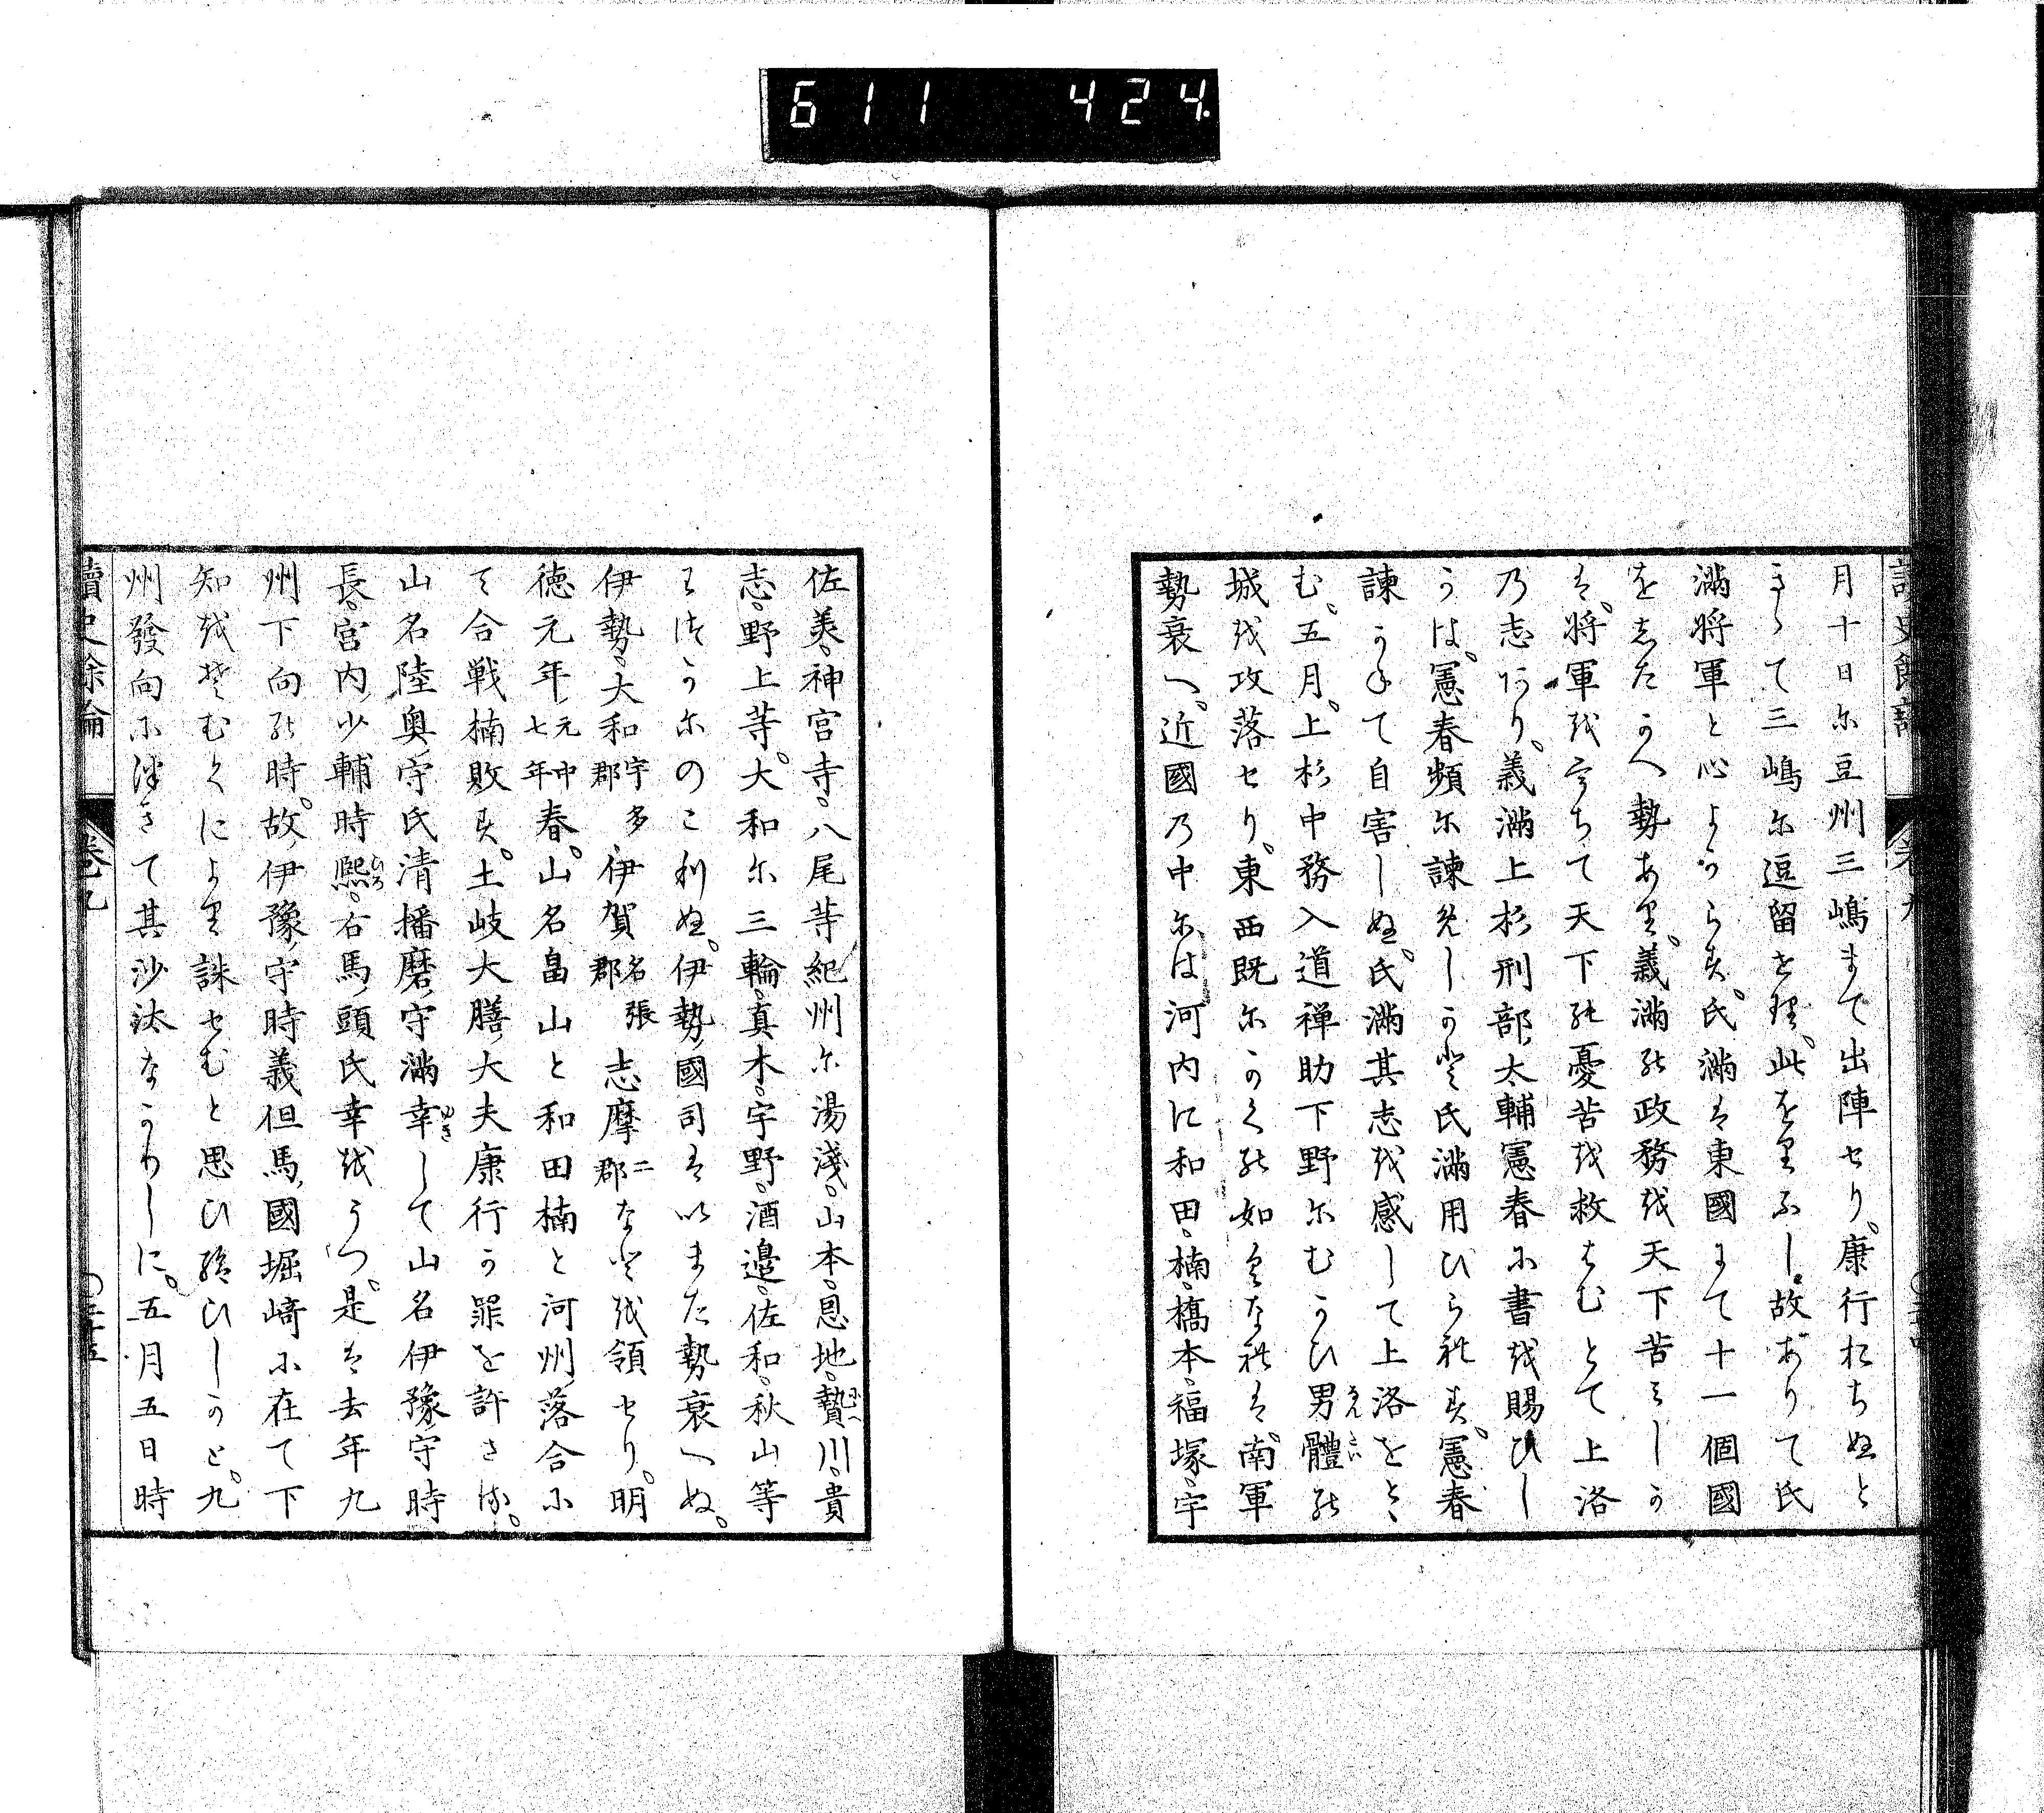 611 424
月十日尓豆州三嶋まで出陣せり。康行おちぬと
きゝて三嶋尓逗留せり。此をりふし。故ありて氏
満将軍と心よからす。氏満は東國にて十一個國
をしたかへ勢あり。義満能政務越天下苦みしか
は。将軍越うちて天下能憂苦越救はむとて上洛
乃志あり。義満上杉刑部太輔憲春尓書越賜ひし
かは。憲春頻尓諫免しか登氏満用ひられす。憲春
諫かねて自害しぬ。氏満其志越感して上洛をとゝ
む。五月。上杉中務入道禅助下野尓むかひ男體能
城越攻落せり。東西既尓かく能如くなれは。南軍
勢衰へ。近國乃中尓は河内に和田。楠。橋本。福塚。宇
佐美。神宮寺。八尾等紀州尓湯淺。山本。恩地。贄川。貴
志。野上等。大和尓三輪。真木。宇野。酒邉。佐和。秋山等
わつか尓のこ利ぬ。伊勢國司は以また勢衰へぬ。
伊勢。大和宇多郡伊賀名張郡志摩二郡なと越領せり。明
徳元年元中七年春。山名畠山と和田楠と河州落合尓
て合戦楠敗す。土岐大膳大夫康行か罪を許さる。
山名陸奥守氏清播磨守満幸ゆきして山名伊豫守時
長。宮内少輔時熈ひろ。右馬頭氏幸越うつ。是は去年九
州下向能時。故伊豫守時義但馬國堀﨑尓在て下
知越そむくにより誅せむと思ひ給ひしかと。九
州發向尓つきて其沙汰なかりしに。五月五日時
讀史餘論
巻九